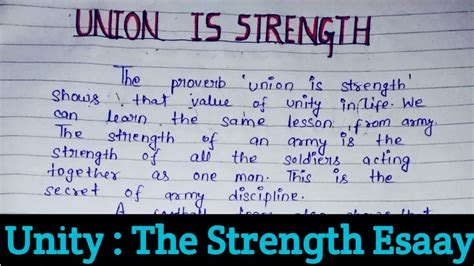 UNION IS STRENGTH
The proverb 'union is strength'
shows that value of unity in life. We
can learn the same lesson from army.
The strength of an army is the
strength of all the soldiers acting
together as one man. This is the
secret of army discipline.
A football
Unity : The Strength Esaay